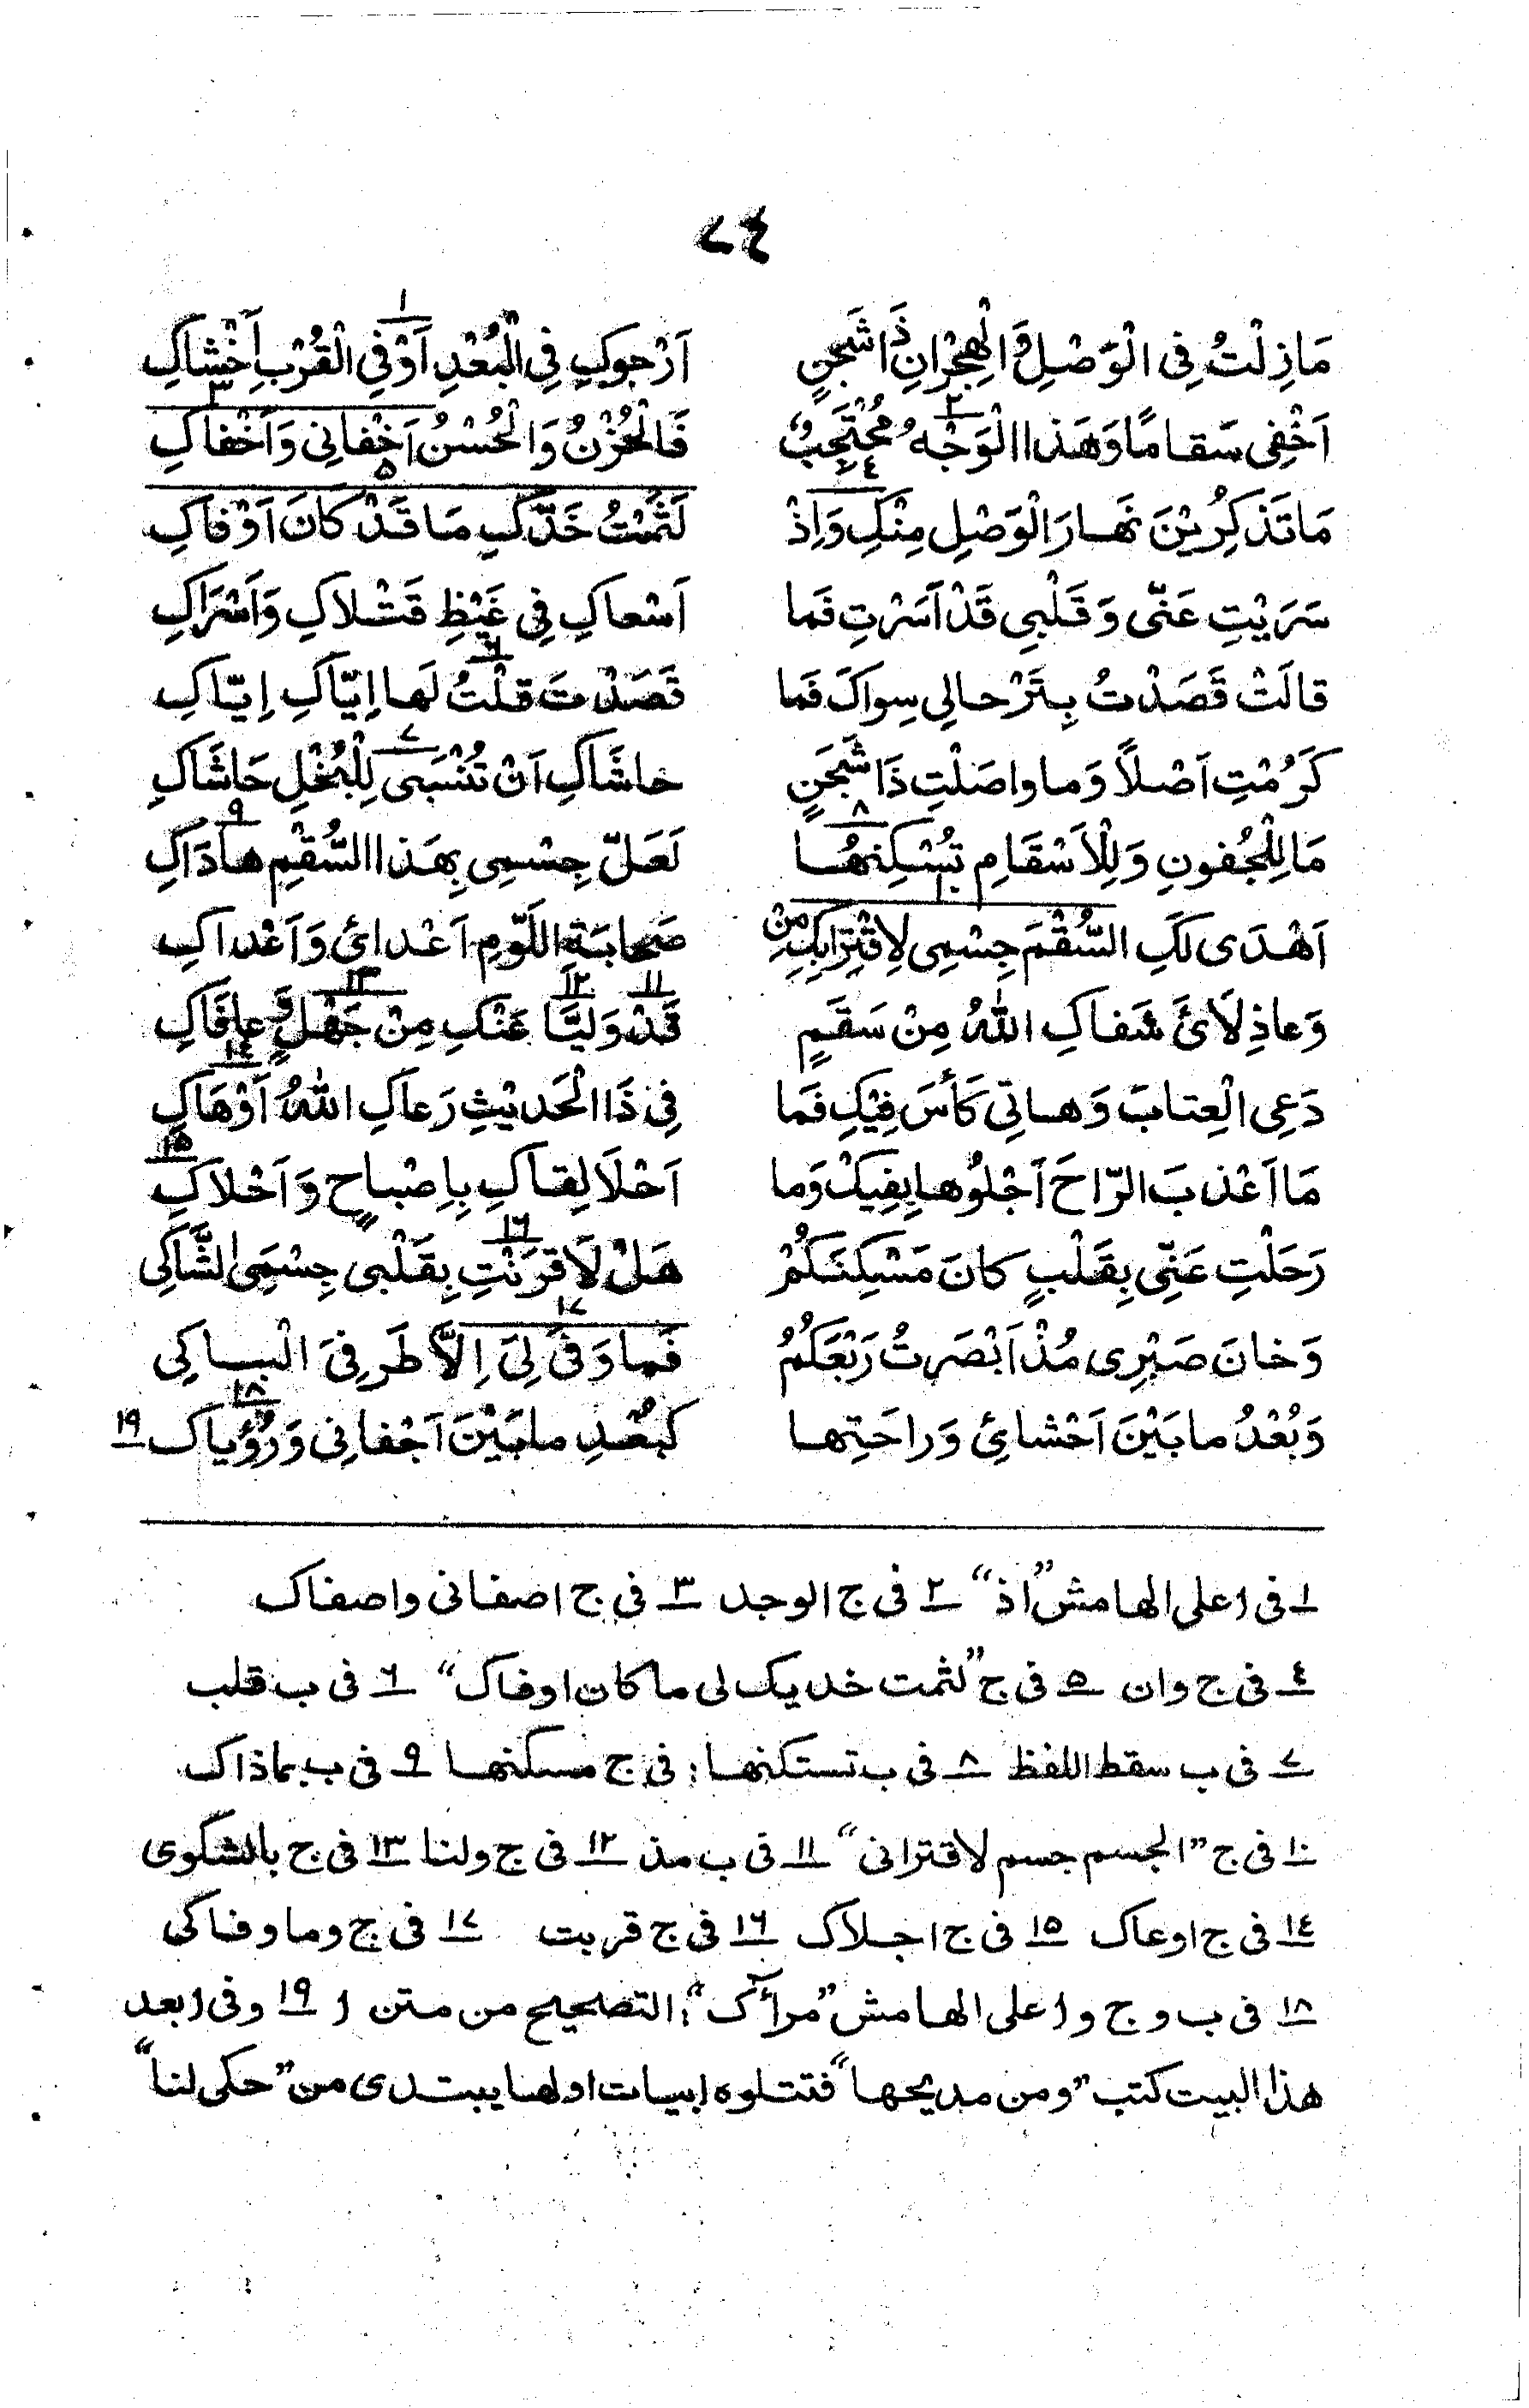 ٧٤
مَازِلْتُ فِى الْوَصْلِ وَالْهِجْرَانِ ذَا شَجَنٍ    اَرْجوكِ فِى الْبُعْدِ اَوْ فِي الْقُرْبِ اَخْشاكِ ١
اَخْفِى سَقامًا وَهَذا الْوَجْهُ مُحْتَجِبٌ ٢    فَالْحُزْنُ وَالْحُسْنُ اَخْفانِى وَاَخْفاكِ ٣
مَا تَذكِرُيْنَ نَهارَ الْوَصْلِ مِنْكِ وَاِذْ ٤    لَثَمْتُ خَدَّكِ مَا قَدْ كَانَ اَوْفاكِ ٥
سَرَيْتِ عَنّى وَقَلْبِى قَدْ اَسَرْتِ فَما    اَسْعاكِ فِى غَيْظِ قَتْلاكِ وَاَسْرَاكِ
قالَتْ قَصَدْتُ بِتَرْحالِى سِواكَ فَما    قَصَدْتَ قلْتُ لَها اِيّاكِ اِيّاكِ ٦
كَرُمْتِ اَصْلاً وَما واصَلْتِ ذَا شَجَنٍ    حاشَاكِ اَنْ تُنْسَبَى لِلْبُخْلِ حَاشَاكِ ٧
مَا لِلْجُفونِ وَلِلْاَسْقَامِ تُسْكِنهُا ٨    لَعَلّ جِسْمِى بِهَذا السُّقْمِ هادَاكِ ٩
اَهْدَى لَكِ السُّقْمَ جِسْمِى لِاقْتِرَابِكِ مِنْ ١٠    صَحابَةِ اللَوّمِ اَعْدائِ وَاَعْداكِ
وَعاذِلَائَ شَفاكِ اللهُ مِنْ سَقَمٍ    قَدْ وَلِيَّا عَنْكِ مِنْ جَهْلٍ وَعافَاكِ ١١ ١٢ ١٣
دَعِى الْعِتابَ وَهاتِى كَأسَ فِيْكِ فَما    فِى ذَا الْحَدِيْثِ رَعاكِ اللهُ اَوْهَاكِ ١٤
مَا اَعْذبَ الرّاحَ اَجْلُوها بِفِيكْ وَما    اَحْلَا لِقاكِ بِاِصْباحٍ وَاَحْلاكِ ١٥
رَحَلْتِ عَنِّى بِقَلْبٍ كانَ مَسْكِنَكُمْ    هَلْ لَا قرَنْتِ بِقَلْبى جِسْمَِى الشَّاكِى ١٦
وَخانَ صَبْرِى مُذْ اَبْصَرتُ رَبْعَكُمُ    فَما وَفىَ لِىَ اِلاَّ طَرفِىَ الْباكِى ١٧
وَبُعْدُ ما بَيْنَ اَحْشائِ وَراحَتِها    كَبُعْدِ ما بَيْنَ اَجْفانِى وَرُؤْياكِ ١٨ ١٩
١ فى ا على الهامش ”اذ“ ٢ فى ج الوجد ٣ فى ج اصفانى واصفاك
٤ فى ج وان ٥ فى ج ”لثمت خديك لى ما كان اوفاك“ ٦ فى ب قلب
٧ فى ب سقط اللفظ ٨ فى ب تستكنها؛ فى ج مسكنها ٩ فى ب بماذاك
١٠ فى ج ”الجسم جسم لاقترانى“ ١١ فى ب مذ ١٢ فى ج ولنا ١٣ فى ج بالشكوى
١٤ فى ج اوعاك ١٥ فى ج اجلاك ١٦ فى ج قربت ١٧ فى ج وما وفاكى
١٨ فى ب و ج و ا على الهامش ”مرآك“؛ التصحيح من متن ا ١٩ وفى ا بعد
هذا البيت كتب ”ومن مديحها“ فتتلوه ابيات اولها يبتدى من ”حكى لنا“